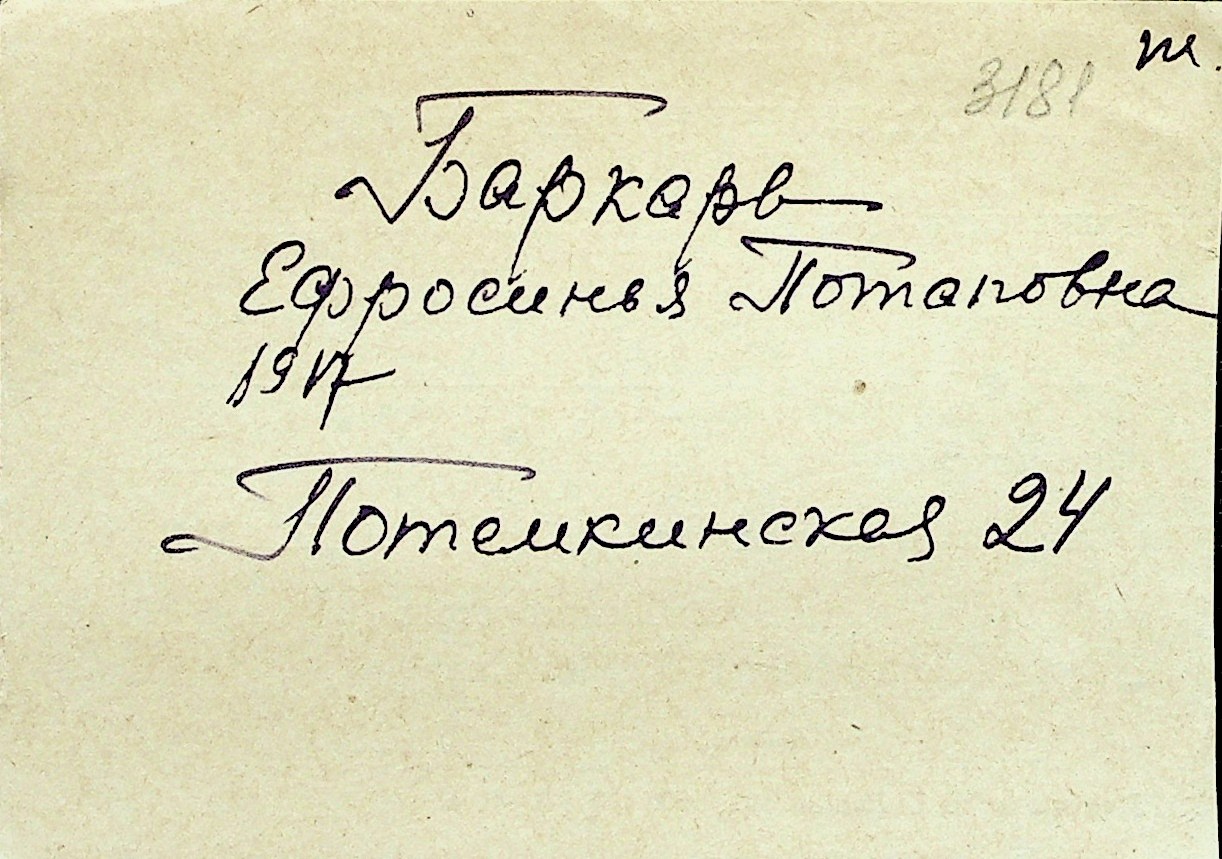 т.
3181
Баркарь
Ефросинья Потаповна
1917
Потемкинская 24